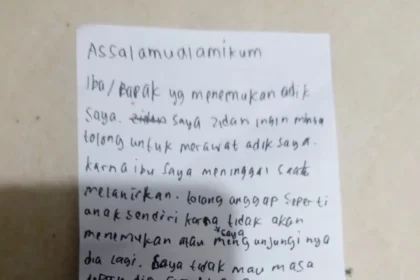 Assalamualamikum
Iba/Bapak yg menemukan adik
saya. zidan saya zidan ingin minta
tolong untuk merawat adik saya.
karna ibu saya meninggal saat
melahirkan. tolong anggap seperti
anak sendiri karna tidak akan
menemukan atau saya mengunjungi nya
dia lagi. Saya tidak mau masa